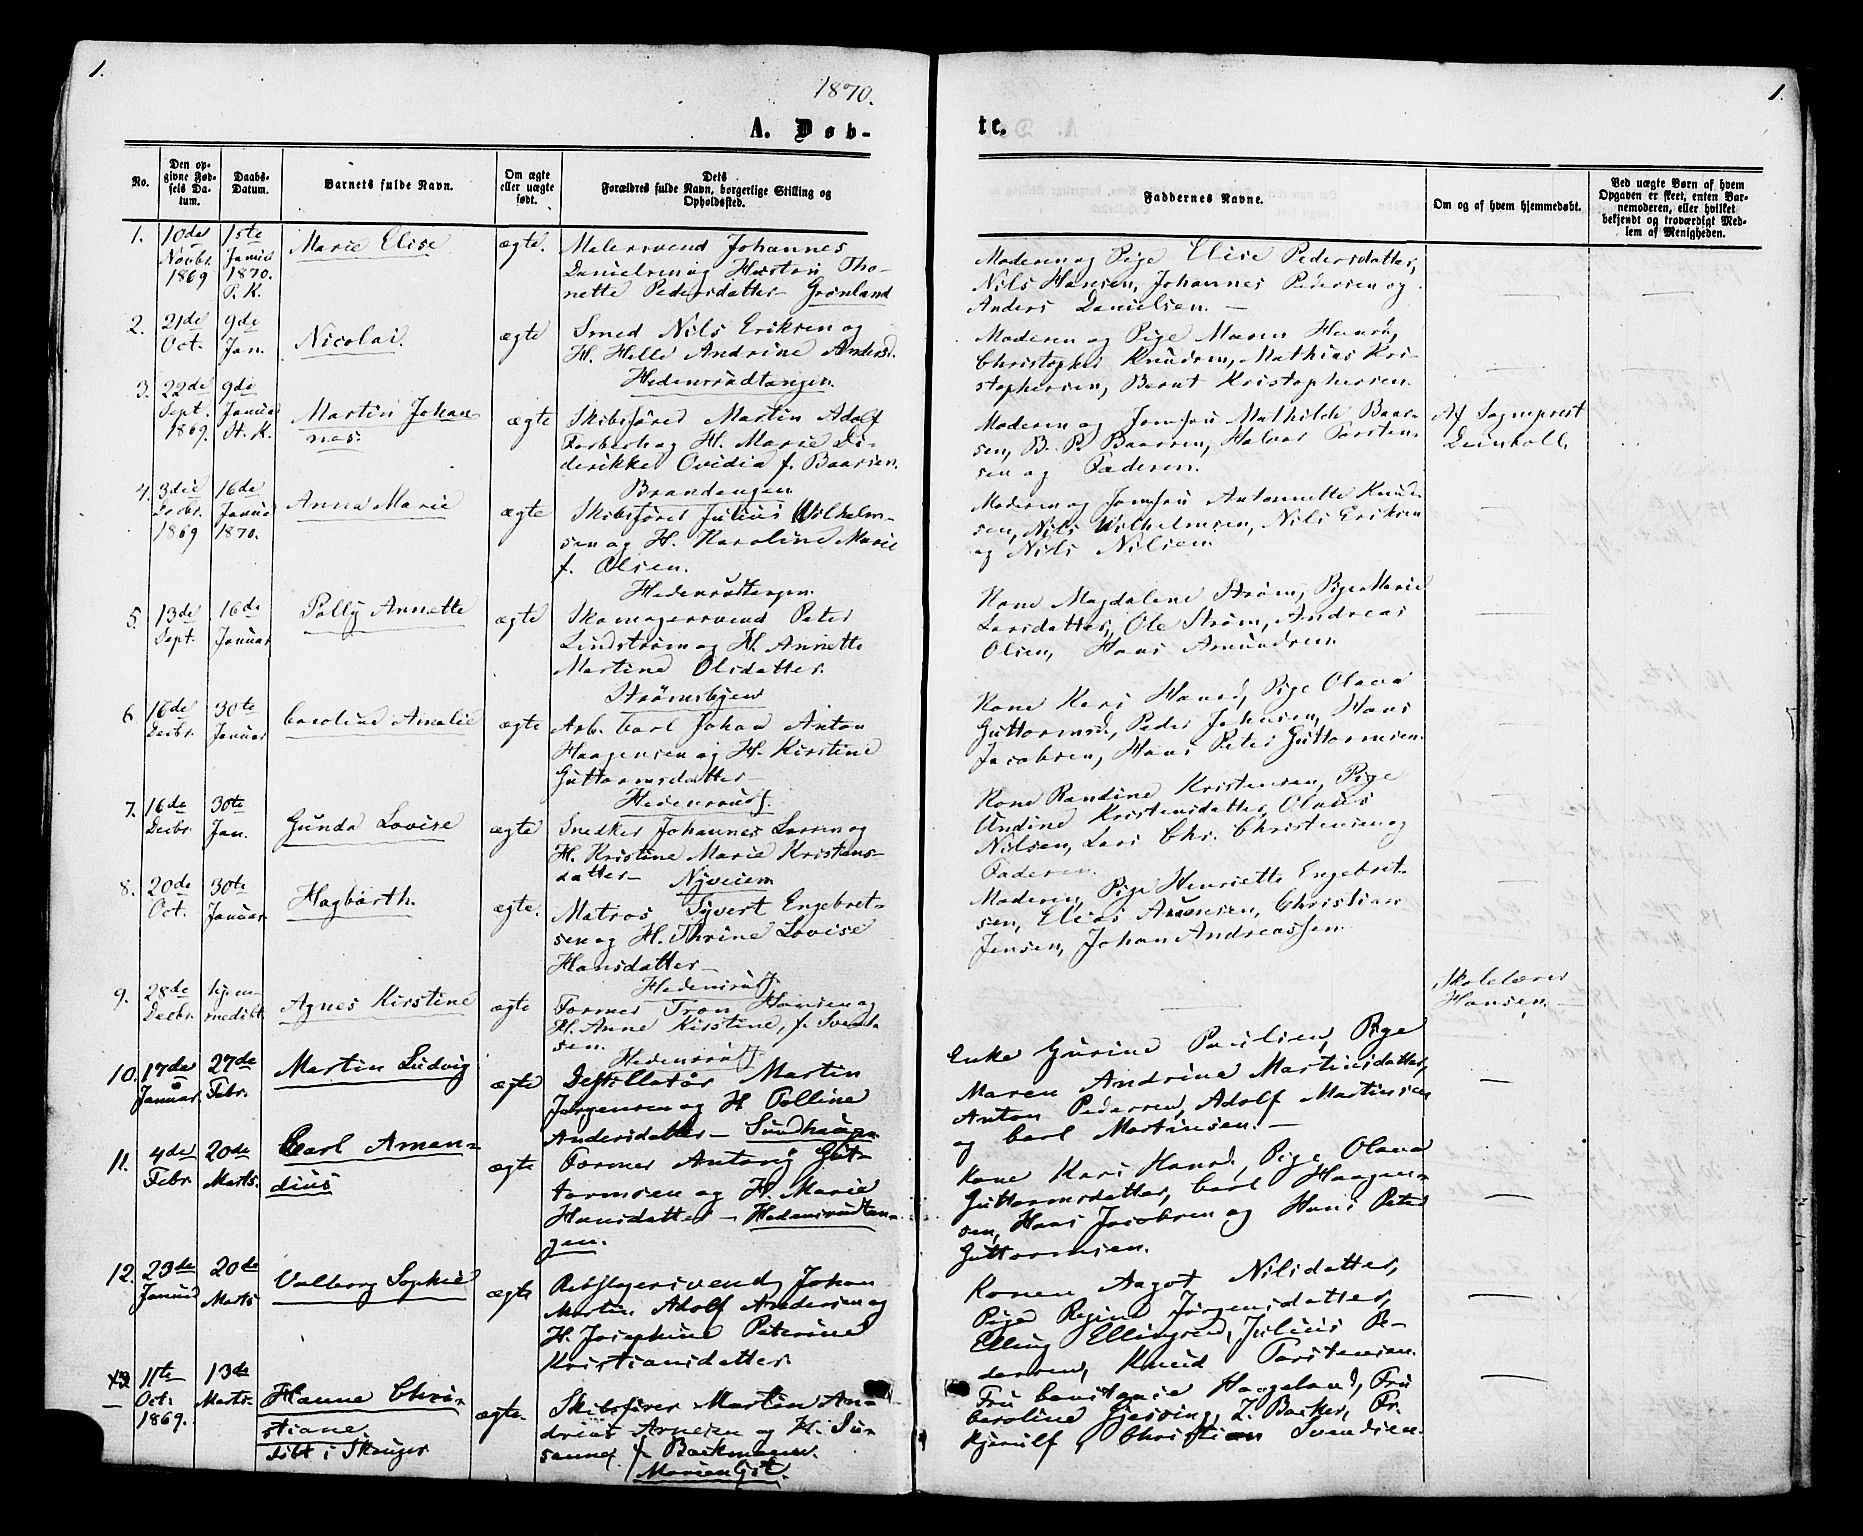 1.
1870.
1.
A. Døb-
te.
No.
Den op-
givne Fød-
sels Da-
tum.
Daabs-
Datum.
Barnets fulde Navn.
Om ægte
eller uægte
født.
Dets
Forældres fulde Navn, borgerlige Stilling og
Opholdssted.
Faddernes Navne.
Om og af hvem hjemmedøbt.
Ved uægte Børn af hvem
Opgaven er skeet, enten Bar-
nemoderen, eller hvilket
bekjendt og troværdigt Med-
lem af Menigheden.
1.
10de
Novbr.
1869
1ste
Januar
1870.
P. K.
Marie Elise
ægte.
Malersvend Johannes
Danielsen og Hustru Tho-
nette Pedersdatter Grønland
Moderen og Pige Elise Pedersdatter,
Nils Hansen, Johannes Pedersen og
Anders Danielsen. —
2.
21de
Oct.
9de
Jan.
Nicolai
ægte
Smed Nils Eriksen og
H. Helle Andrine Andersd.
Hedensrudtangen
Moderen og Pige Maren Hansd,
Christopher Knudsen, Mathias Kri-
stophersen, Bernt Kristophersen.
3.
22de
Sept.
1869.
9de
Januar
St. K.
Martin Johan-
nes.
ægte
Skibsfører Martin Adolf
og H. Marie Di-
derikke Ovidia f. Baarsen.
Brandengen
Moderen og Jomfru Mathilde Baar-
sen, B. P. Baarsen, Halvor Torsten-
sen og Faderen.
Af Sogneprest
Deinboll.
4.
3die
Decbr.
1869
16de
Januar
1870.
Anna Marie
ægte
Skibsfører Julius Wilhelm-
sen og H. Karoline Marie
f. Olsen.
Hedensrudtangen.
Moderen og Jomfru Antonnette Knud-
sen, Nils Wilhelmsen, Nils Eriksen
og Nils Nilsen.
5.
13de
Sept.
16de
Januar
Polly Annette
ægte
Skomagersvend Peter
Lindstrøm og H. Annette
Martine Olsdatter.
Strømsbyen
Kone Magdalene Strøm, Pige Marie
Larsdatter, Ole Strøm, Andreas
Olsen, Hans Amundsen.
6.
16de
Decbr.
30te
Januar
Caroline Amalie
ægte
Arb. Carl Johan Anton
Haagensen og H. Kirstine
Guttormsdatter
Hedensrudt.
Kone Kari Hansd, Pige Olava
Guttormsd, Peder Johnsen, Hans
Jacobsen, Hans Peter Guttormsen.
7.
16de
Decbr.
30te
Jan.
Gunda Lovise
ægte
Snedker Johannes Larsen og
H. Kristine Marie Kristens-
datter — Nyveien
Kone Randine Kristensen, Pige
Andine Kristensdatter, Olaus
Nilsen, Lars Chr. Christensen og
Faderen.
8.
20de
Oct.
30te
Januar.
Hagbarth.
ægte.
Matros Syvert Engebret-
sen og H. Thrine Lovise
Hansdatter —
Hedensrudt.
Moderen, Pige Henriette Engebret-
sen, Elias Amonsen, Christian
Jensen, Johan Andreassen.
9.
28de
Decbr.
hjem-
medøbt.
Agnes Kirstine
ægte
Former Tron Hansen og
H. Anne Kirstine, f. Svend-
sen.
Hedensrudt.
Skolelærer
Hansen.
10.
17de
Januar.
27de
Febr.
Martin Ludvig
ægte
Destillatør Martin
Jørgensen og H. Polline
Andersdatter — Sundhaugen
Enke Gurine Paulsen, Pige
Maren Andrine Martinsdatter,
Anton Pedersen, Adolf Martinsen
og Carl Martinsen. —
11.
4de
Febr.
20de
Marts.
Carl Aman-
dius
ægte
Former Anton Gut-
tormsen og H. Marie
Hansdatter — Hedensrudtan-
gen.
Kone Kari Hansd, Pige Olava
Guttormsdatter, Carl Haagen-
sen, Hans Jacobsen og Hans Peter
Guttormsen.
12.
23de
Januar
20de
Marts
Valborg Sophie
ægte
Rebslagersvend Johan
Martin Adolf Andersen og
H. Josephine Peterine
Kristiansdatter.
Konen Aagot Nilsdatter,
Pige Regine Jørgensdatter,
Elling Ellingsen, Julius Pe-
dersen, Knud Torstensen.
13
11te
Oct.
1869.
13de
Marts.
Hanne Chri-
stiane
døbt i Skauger
ægte.
Skibsfører Martin An-
dreas Arnesen og H. Su-
sanne f. Backmann.
Marienlyst.
Fru Constance Haageland, Fru
Caroline Gjessing, Z. Backer, Fr.
Kjerulf, Christian Svendsen.